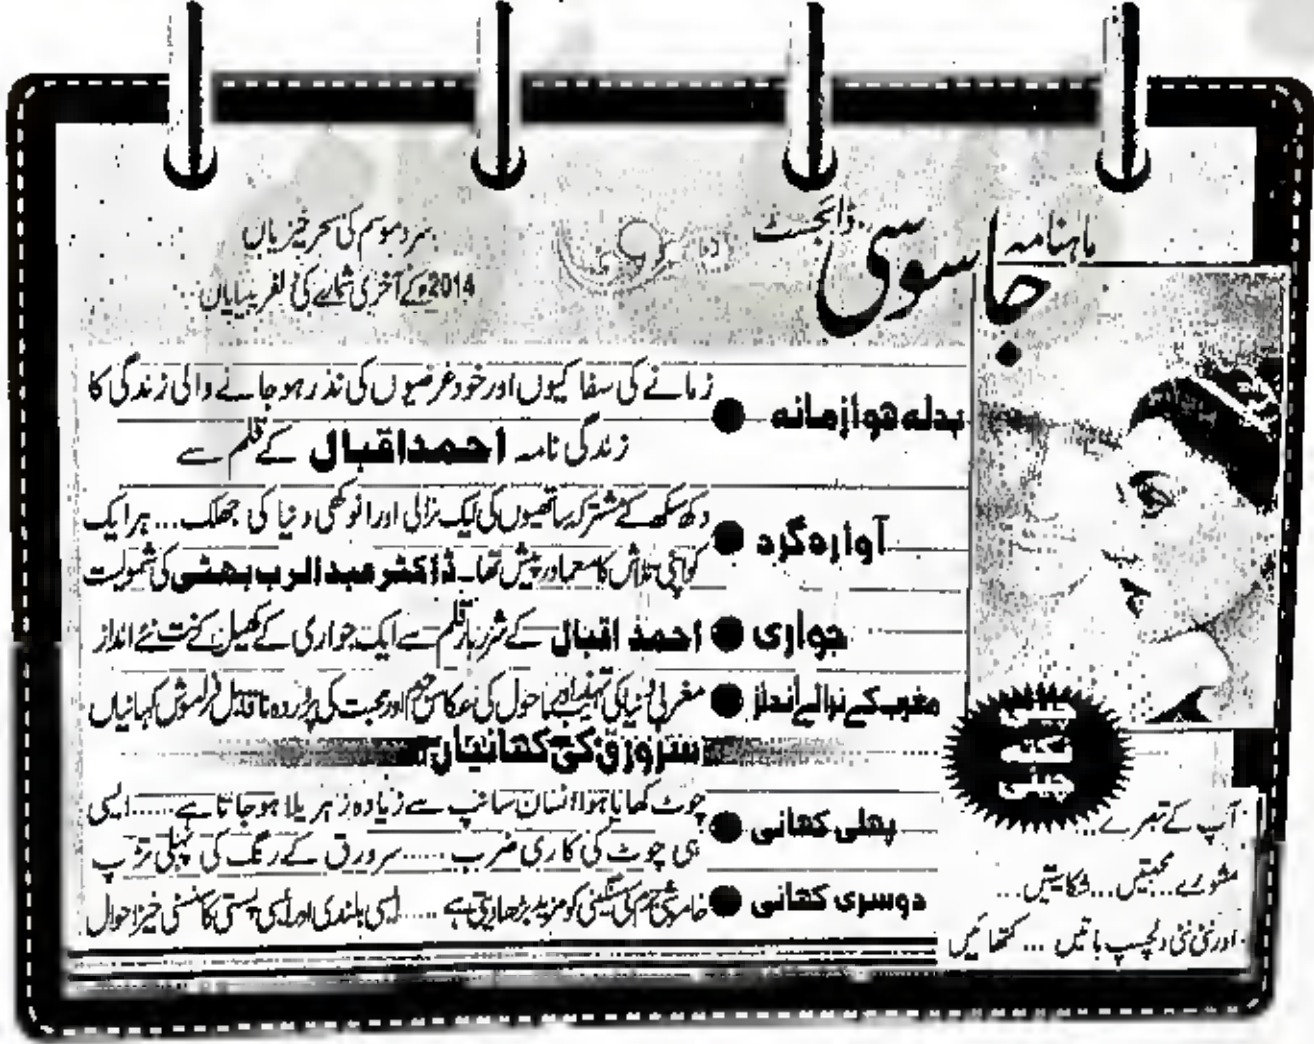 ماہنامہ
جاسوسی ڈائجسٹ
سرد موسم کی سحر خیزیاں
2014ء کے آخری شمارے کی دلفریبیاں
بدلہ ہوا زمانہ ● زمانے کی سفاکیوں اور خود غرضیوں کی نذر ہو جانے والی زندگی کا
زندگی نامہ احمد اقبال کے قلم سے
آوارہ گرد ● دکھ سکھ کے مشترکہ ساتھیوں کی ایک نرالی اور انوکھی دنیا کی جھلک... ہر ایک
کو اپنی تلاش کا معما درپیش تھا۔ ڈاکٹر عبدالرب بھٹی کی شمولیت
جواری ● احمد اقبال کے شرربار قلم سے ایک جواری کے کھیل کے نت نئے انداز
مغرب کے نرالے انداز ● مغربی دنیا کی تہذیب اور ماحول کی عکاسی جرم اور محبت کی ناقابل فراموش کہانیاں
سرورق کی کہانیاں
پہلی کہانی ● چوٹ کھایا ہوا انسان سانپ سے زیادہ زہریلا ہو جاتا ہے..... ایسی
ہی چوٹ کی کاری ضرب ..... سرورق کے رنگ کی پہلی تڑپ
دوسری کہانی ● خاموشی جرم کی سنگینی کو مزید بڑھا دیتی ہے ..... ایسی بلندی اور ایسی پستی کا سنسنی خیز احوال
چینی
نکتہ
چینی
آپ کے تبصرے...
مشورے... محبتیں... شکایتیں...
اور نئی نئی دلچسپ باتیں ... کتھائیں